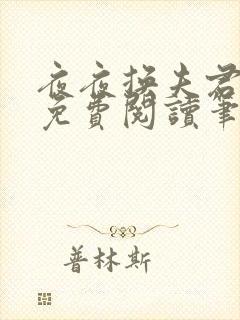 夜夜换夫君
免費閱讀筆
普林斯